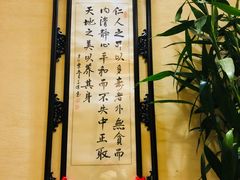 仁人之所以多壽者外無貪而
內清靜心平和而不失中正取
天地之美以養其身